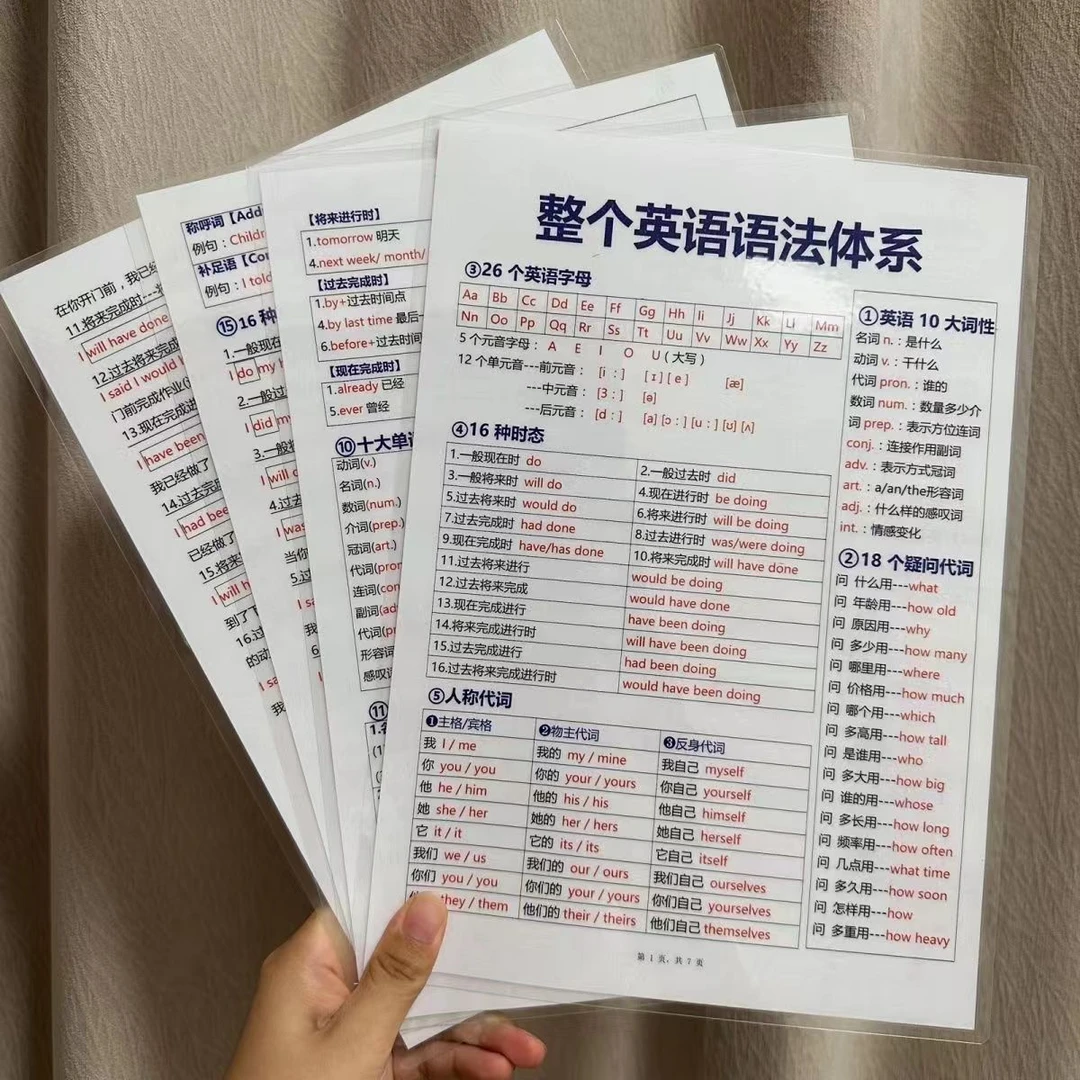 整个英语语法体系
③26 个英语字母
Aa Bb Cc Dd Ee Ff Gg Hh Ii Jj Kk Ll Mm
Nn Oo Pp Qq Rr Ss Tt Uu Vv Ww Xx Yy Zz
5 个元音字母： A E I O U (大写)
12 个单元音---前元音： [i：] [ɪ] [e] [æ]
---中元音： [3：] [ə]
---后元音： [d：] [a] [ɔ：] [u：] [ʊ] [ʌ]
④16 种时态
1.一般现在时 do
2.一般过去时 did
3.一般将来时 will do
4.现在进行时 be doing
5.过去将来时 would do
6.将来进行时 will be doing
7.过去完成时 had done
8.过去进行时 was/were doing
9.现在完成时 have/has done
10.将来完成时 will have done
11.过去将来进行 would be doing
12.过去将来完成 would have done
13.现在完成进行 have been doing
14.将来完成进行时 will have been doing
15.过去完成进行 had been doing
16.过去将来完成进行时 would have been doing
⑤人称代词
❶主格/宾格 ❷物主代词 ❸反身代词
我 I / me 我的 my / mine 我自己 myself
你 you / you 你的 your / yours 你自己 yourself
他 he / him 他的 his / his 他自己 himself
她 she / her 她的 her / hers 她自己 herself
它 it / it 它的 its / its 它自己 itself
我们 we / us 我们的 our / ours 我们自己 ourselves
你们 you / you 你们的 your / yours 你们自己 yourselves
they / them 他们的 their / theirs 他们自己 themselves
①英语 10 大词性
名词 n.：是什么
动词 v.：干什么
代词 pron.：谁的
数词 num.：数量多少介
词 prep.：表示方位连词
conj.：连接作用副词
adv.：表示方式冠词
art.：a/an/the形容词
adj.：什么样的感叹词
int.：情感变化
②18 个疑问代词
问 什么用---what
问 年龄用---how old
问 原因用---why
问 多少用---how many
问 哪里用---where
问 价格用---how much
问 哪个用---which
问 多高用---how tall
问 是谁用---who
问 多大用---how big
问 谁的用---whose
问 多长用---how long
问 频率用---how often
问 几点用---what time
问 多久用---how soon
问 怎样用---how
问 多重用---how heavy
第 1 页，共 7 页
【将来进行时】
1.tomorrow 明天
4.next week/ month/
【过去完成时】
1.by+过去时间点
4.by last time 最后一
6.before+过去时间
【现在完成时】
1.already 已经
5.ever 曾经
⑩十大单
动词(v.)
名词(n.)
数词(num.)
介词(prep.)
冠词(art.)
代词(pro
连词(con
副词(ad
代词(p
形容词
感叹词
⑪
称呼词【Add
例句：Child
补足语【Co
例句：I told
⑮16 种
1.一般现在
I do my
2.一般过
I did my
3.一般将
I will d
4.过去
I was
当你
5.过
I sa
在你开门前，我已经
11.将来完成时---
I will have done
12.过去将来完成时
I said I would
门前完成作业
13.现在完成进
I have been
我已经做了
14.过去完成
I had bee
已经做了
15.将来
I will h
到了下
16.过
的动
I sa